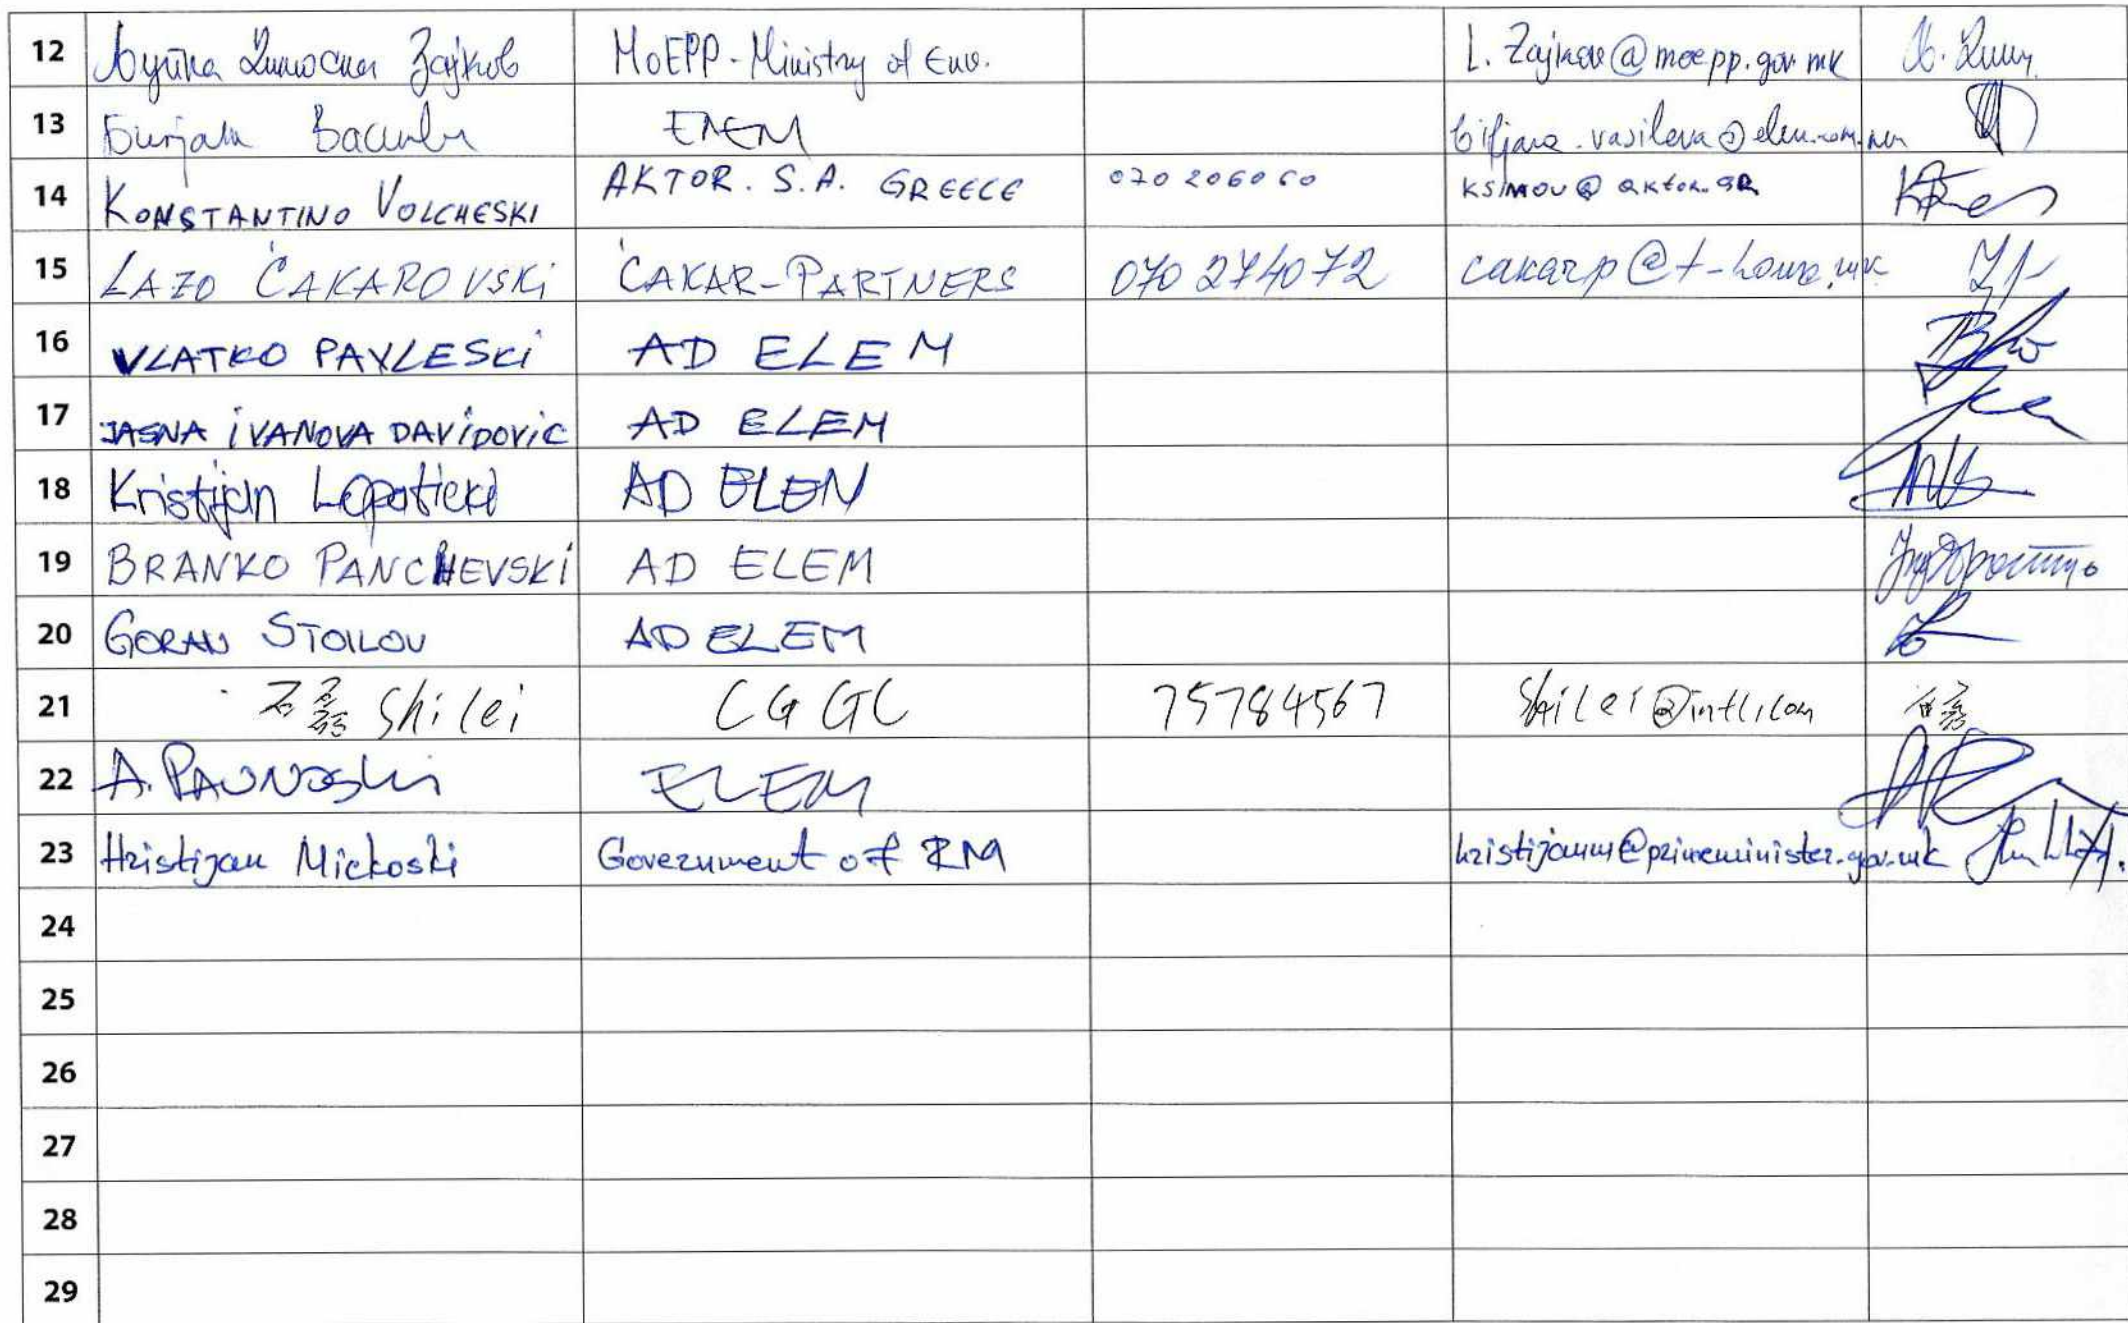 12 Љупка Димоска Зајков MoEPP-Ministry of Env. L.Zajkov@moepp.gov.mk
13 Билјана Василева ELEM biljana.vasileva@elem.com.mk
14 KONSTANTINO VOLCHESKI AKTOR. S.A. GREECE 070 206060 KSIMOU@aktor.GR
15 LAZO ĆAKAROVSKi ĆAKAR-PARTNERS 070 274072 cakarp@t-home.mk
16 VLATKO PAVLESKi AD ELEM
17 JASNA iVANOVA DAViDOViC AD ELEM
18 Kristijan AD ELEM
19 BRANKO PANCHEVSKi AD ELEM
20 GORAN STOILOV AD ELEM
21 石磊 Shilei CGGC 75784567 Shilei@intl.com
22 A. PAUNOSKi ELEM
23 Hristijan Mickoski Government of RM hristijanm@primeminister.gov.mk
24
25
26
27
28
29